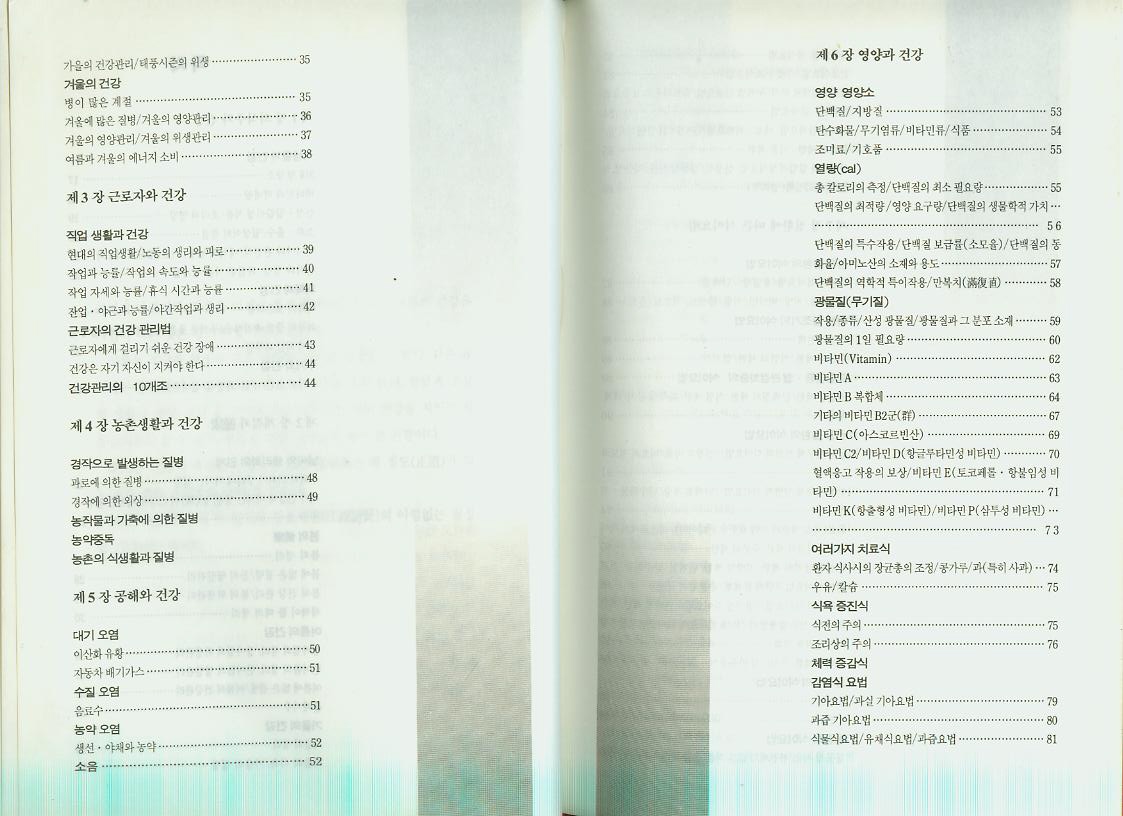 가을의 건강관리/태풍시즌의 위생 ························ 35
겨울의 건강
병이 많은 계절 ············································· 35
겨울에 많은 질병/겨울의 영양관리 ························ 36
겨울의 영양관리/겨울의 위생관리 ························ 37
여름과 겨울의 에너지 소비 ································ 38
제 3 장 근로자와 건강
직업 생활과 건강
현대의 직업생활/노동의 생리와 피로 ······················ 39
작업과 능률/작업의 속도와 능률 ·························· 40
작업 자세와 능률/휴식 시간과 능률 ······················ 41
잔업·야근과 능률/야간작업과 생리 ······················ 42
근로자의 건강 관리법
근로자에게 걸리기 쉬운 건강 장애 ························ 43
건강은 자기 자신이 지켜야 한다 ·························· 44
건강관리의 10개조 ········································ 44
제 4 장 농촌생활과 건강
경작으로 발생하는 질병
과로에 의한 질병 ·········································· 48
경작에 의한 외상 ·········································· 49
농작물과 가축에 의한 질병
농약중독
농촌의 식생활과 질병
제 5 장 공해와 건강
대기 오염
이산화 유황 ················································ 50
자동차 배기가스 ············································ 51
수질 오염
음료수 ······················································ 51
농약 오염
생선·야채와 농약 ·········································· 52
소음 ························································ 52
제 6 장 영양과 건강
영양 영양소
단백질/지방질 ·············································· 53
탄수화물/무기염류/비타민류/식품 ························ 54
조미료/기호품 ·············································· 55
열량(cal)
총 칼로리의 측정/단백질의 최소 필요량 ···················· 55
단백질의 최적량/영양 요구량/단백질의 생물학적 가치 ···
······························································ 56
단백질의 특수작용/단백질 보급률(소모율)/단백질의 동
화율/아미노산의 소재와 용도 ······························ 57
단백질의 역학적 특이작용/만복치(滿復直) ················ 58
광물질(무기질)
작용/종류/산성 광물질/광물질과 그 분포 소재 ············ 59
광물질의 1일 필요량 ······································ 60
비타민(Vitamin) ············································ 62
비타민 A ···················································· 63
비타민 B 복합체 ············································ 64
기타의 비타민 B2군(群) ···································· 67
비타민 C(아스코르빈산) ···································· 69
비타민 C2/비타민 D(항글루타민성 비타민) ················ 70
혈액응고 작용의 보상/비타민 E(토코페롤·항불임성 비
타민) ························································ 71
비타민 K(항출혈성 비타민)/비타민 P(삼투성 비타민) ···
······························································ 73
여러가지 치료식
환자 식사시의 장균총의 조정/콩가루/과(특히 사과) ··· 74
우유/칼슘 ·················································· 75
식욕 증진식
식전의 주의 ················································ 75
조리상의 주의 ·············································· 76
체력 증감식
감염식 요법
기아요법/과실 기아요법 ···································· 79
과즙 기아요법 ·············································· 80
식물식요법/유채식요법/과즙요법 ·························· 81